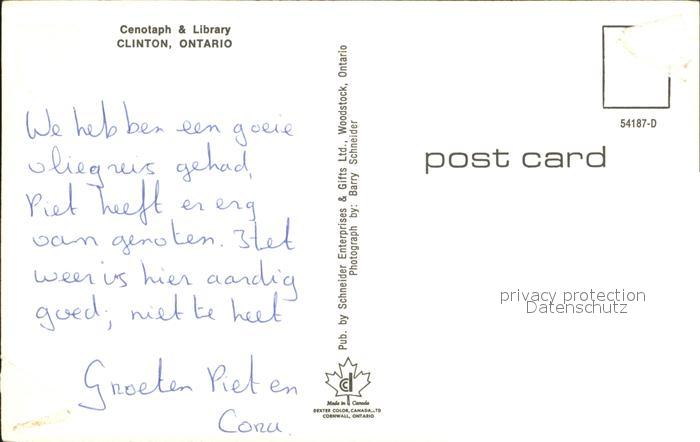 Cenotaph & Library
CLINTON, ONTARIO
We hebben een goeie
vliegreis gehad,
Piet heeft er erg
van genoten. Het
weer is hier aardig
goed; niet te heet
Groeten Piet en
Cora.
Pub. by Schneider Enterprises & Gifts Ltd., Woodstock, Ontario
Photograph by: Barry Schneider
Made in Canada
DEXTER COLOR, CANADA, LTD
CORNWALL, ONTARIO
54187-D
post card
privacy protection
Datenschutz